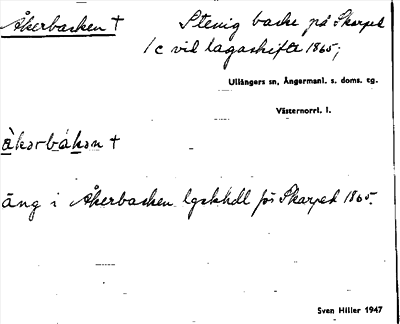 Åkerbacken † Stenig backe på Skarped
1/c vid lagaskifte 1865;
Ullångers sn, Ångermanl. s. doms. tg.
Västernorrl. l.
àkərbákən †
äng i Åkerbacken lgskhdl för Skarped 1865.
Sven Hiller 1947